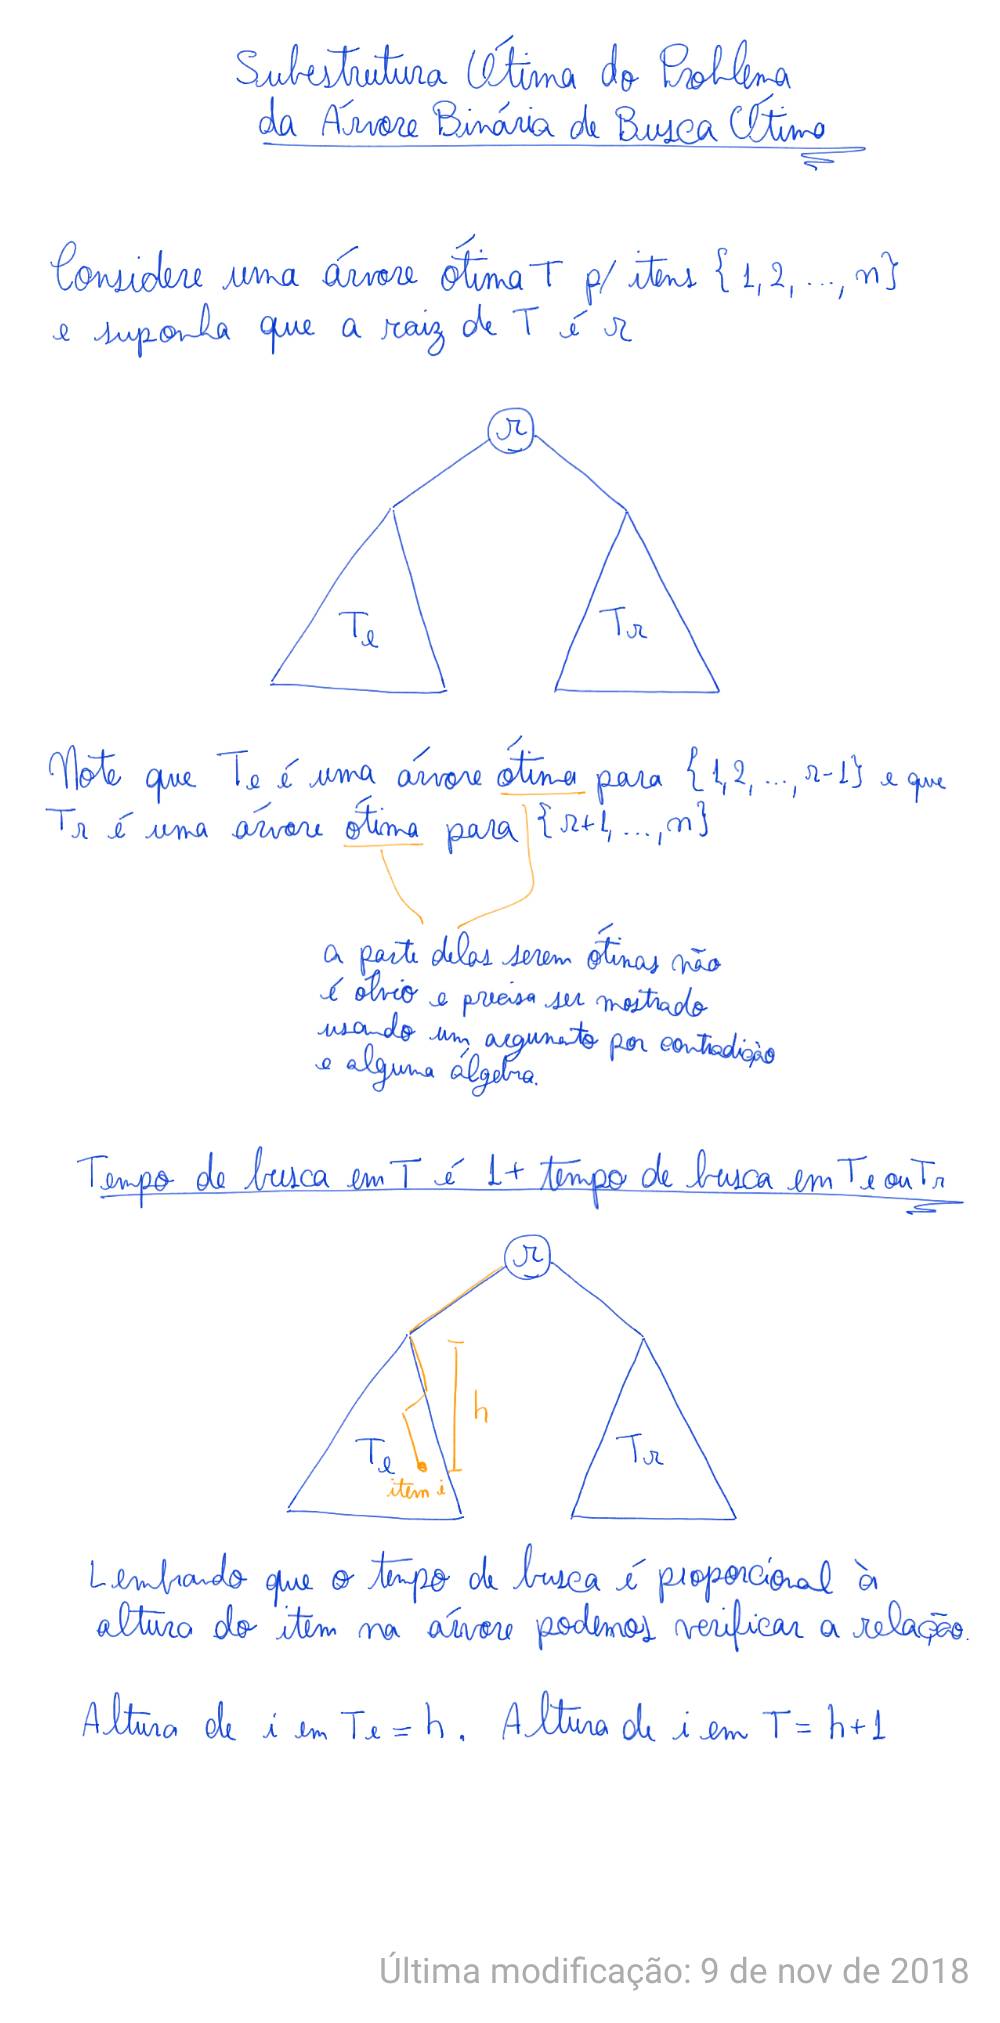 Subestrutura Ótima do Problema
da Árvore Binária de Busca Ótima
Considere uma árvore ótima T p/ itens {1, 2, ..., n}
e suponha que a raiz de T é r
r
Te
Tr
Note que Te é uma árvore ótima para {1, 2, ..., r-1} e que
Tr é uma árvore ótima para {r+1, ..., n}
a parte delas serem ótimas não
é óbvio e precisa ser mostrado
usando um argumento por contradição
e alguma álgebra.
Tempo de busca em T é 1 + tempo de busca em Te ou Tr
r
h
Te
item i
Tr
Lembrando que o tempo de busca é proporcional à
altura do item na árvore podemos verificar a relação.
Altura de i em Te = h. Altura de i em T = h+1
Última modificação: 9 de nov de 2018